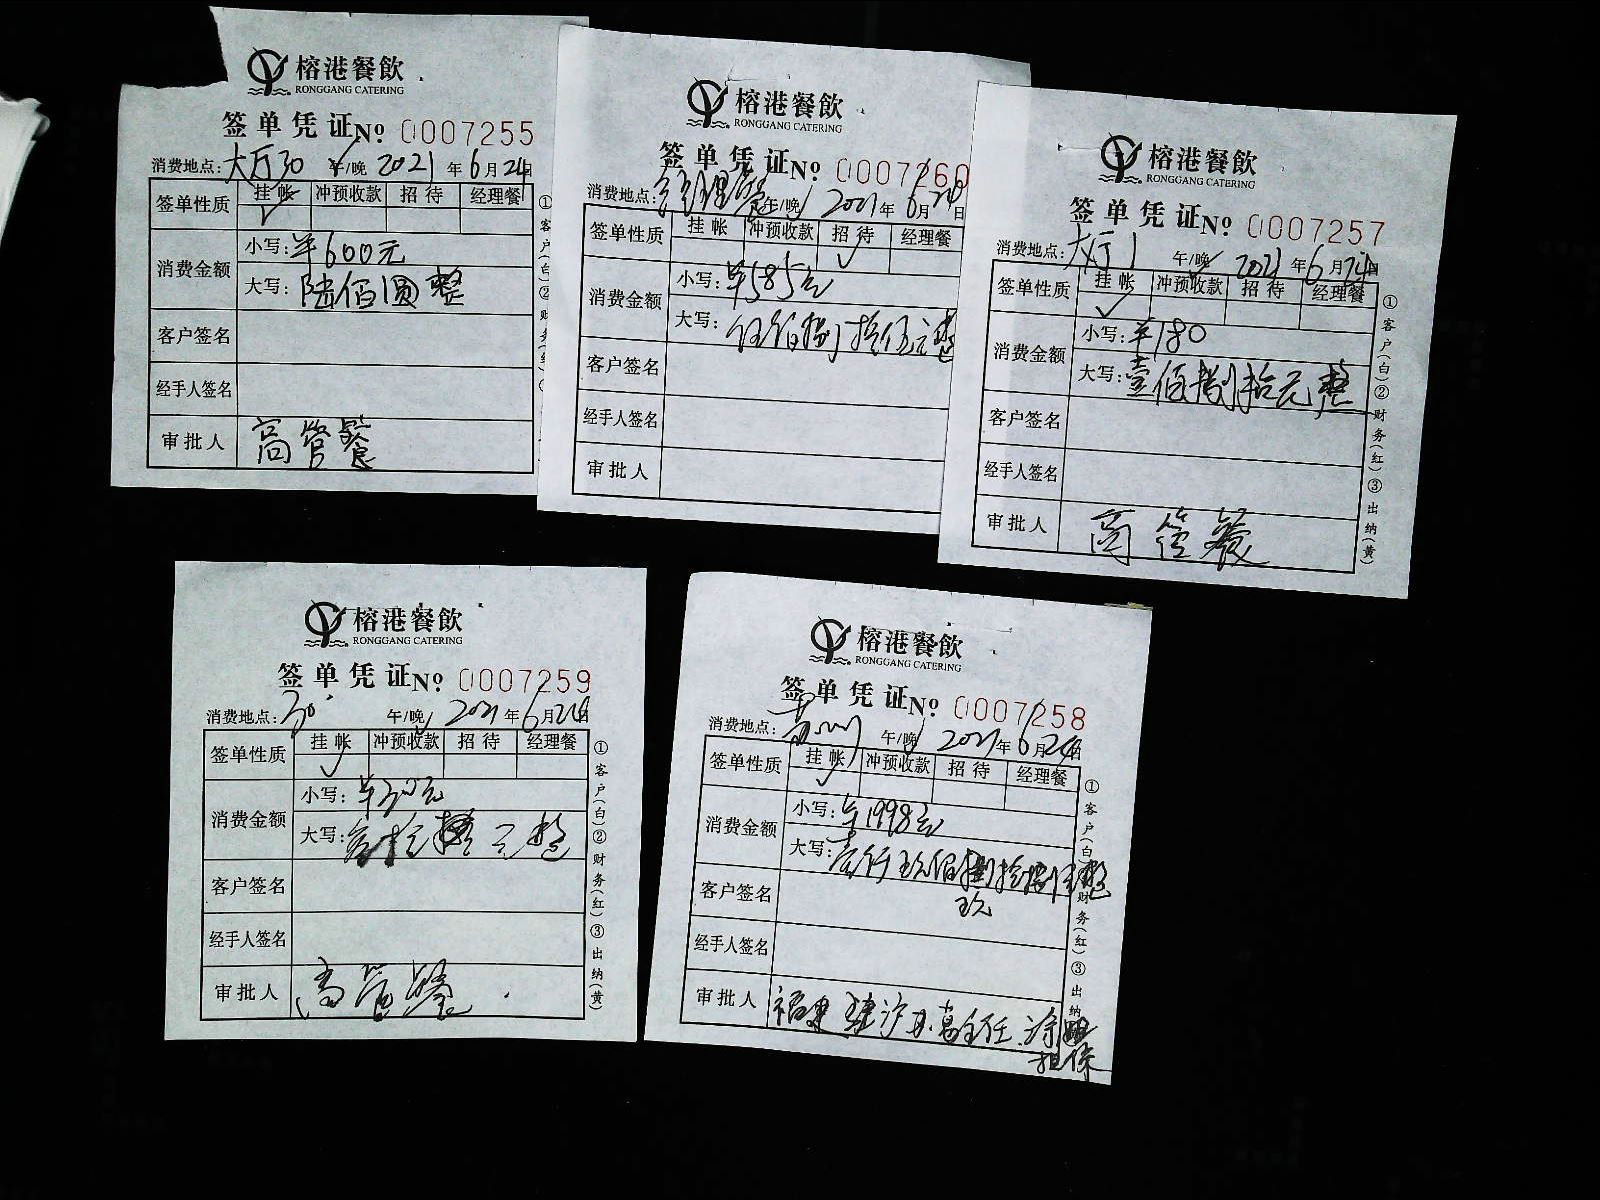 榕港餐飲
RONGGANG CATERING
签单凭证No 0007255
消费地点:大厅30 午/晚 2021年6月24日
签单性质 挂帐 冲预收款 招待 经理餐
消费金额 小写:¥600元
大写:陆佰圆整
客户签名
经手人签名
审批人 高管餐
①客户(白)②财务(红)
榕港餐飲
RONGGANG CATERING
签单凭证No 0007260
消费地点: 经理餐 午/晚 2021年6月24日
签单性质 挂帐 冲预收款 招待 经理餐
消费金额 小写:¥585元
大写:伍佰捌拾伍元整
客户签名
经手人签名
审批人
榕港餐飲
RONGGANG CATERING
签单凭证No 0007257
消费地点:大厅1 午/晚 2021年6月24日
签单性质 挂帐 冲预收款 招待 经理餐
消费金额 小写:¥180
大写:壹佰捌拾元整
客户签名
经手人签名
审批人 高管餐
①客户(白)②财务(红)③出纳(黄)
榕港餐飲
RONGGANG CATERING
签单凭证No 0007259
消费地点:30 午/晚 2021年6月24日
签单性质 挂帐 冲预收款 招待 经理餐
消费金额 小写:¥30元
大写:叁拾元整
客户签名
经手人签名
审批人 高管餐
①客户(白)②财务(红)③出纳(黄)
榕港餐飲
RONGGANG CATERING
签单凭证No 0007258
消费地点: 午/晚 2021年6月24日
签单性质 挂帐 冲预收款 招待 经理餐
消费金额 小写:¥1998元
大写:壹仟玖佰 拾捌元整
玖
客户签名
经手人签名
审批人 福建 办葛主任 涂
担保
①客户(白)财务(红)③出纳